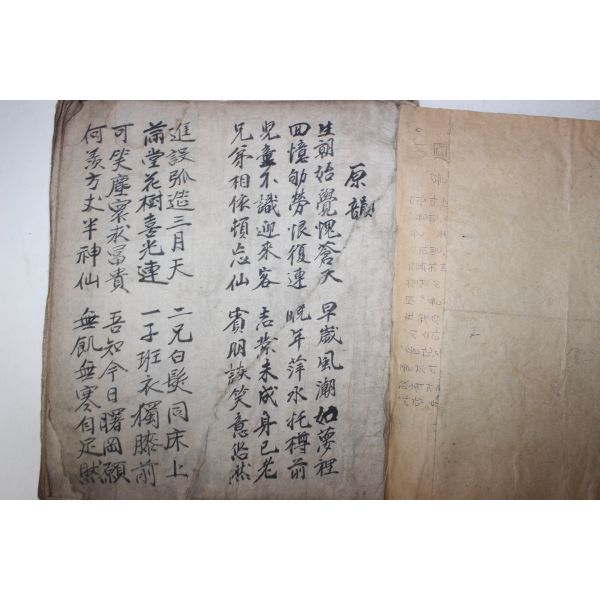 原韻
生朝始覺愧蒼天 早歲風潮如夢裡
回憶劬勞恨復連 晩年萍水托樽前
兒童不識迎來客 志業未成身已老
兄弟相依頓忘仙 賓朋談笑意悠然
進設弧筵三月天 二兄白髮同床上
滿堂花樹喜光連 一子班衣獨膝前
可笑塵寰求冨貴 吾知今日曙岡願
何羨方丈半神仙 無飢無寒自足然